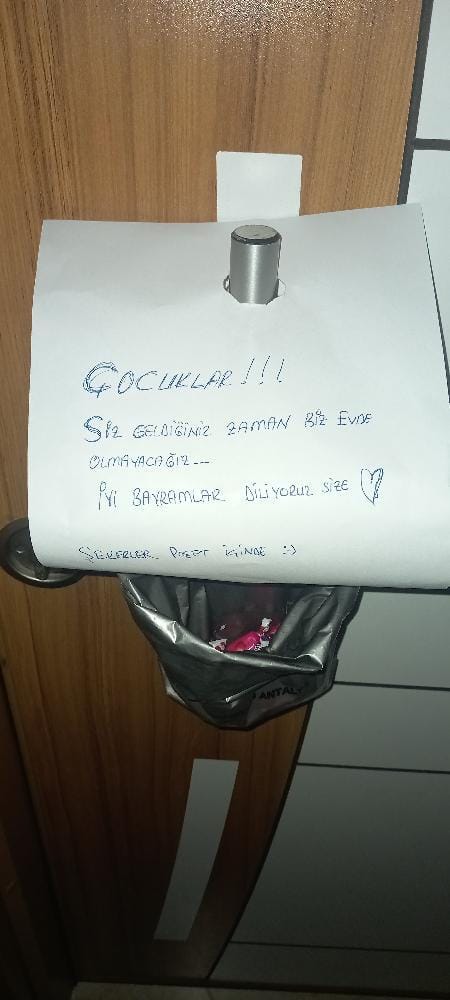 ÇOCUKLAR!!!
SİZ GELDİĞİNİZ ZAMAN BİZ EVDE
OLMAYACAĞIZ...
İYİ BAYRAMLAR DİLİYORUZ SİZE ♡
ŞEKERLER POŞET İÇİNDE :)
ANTALY